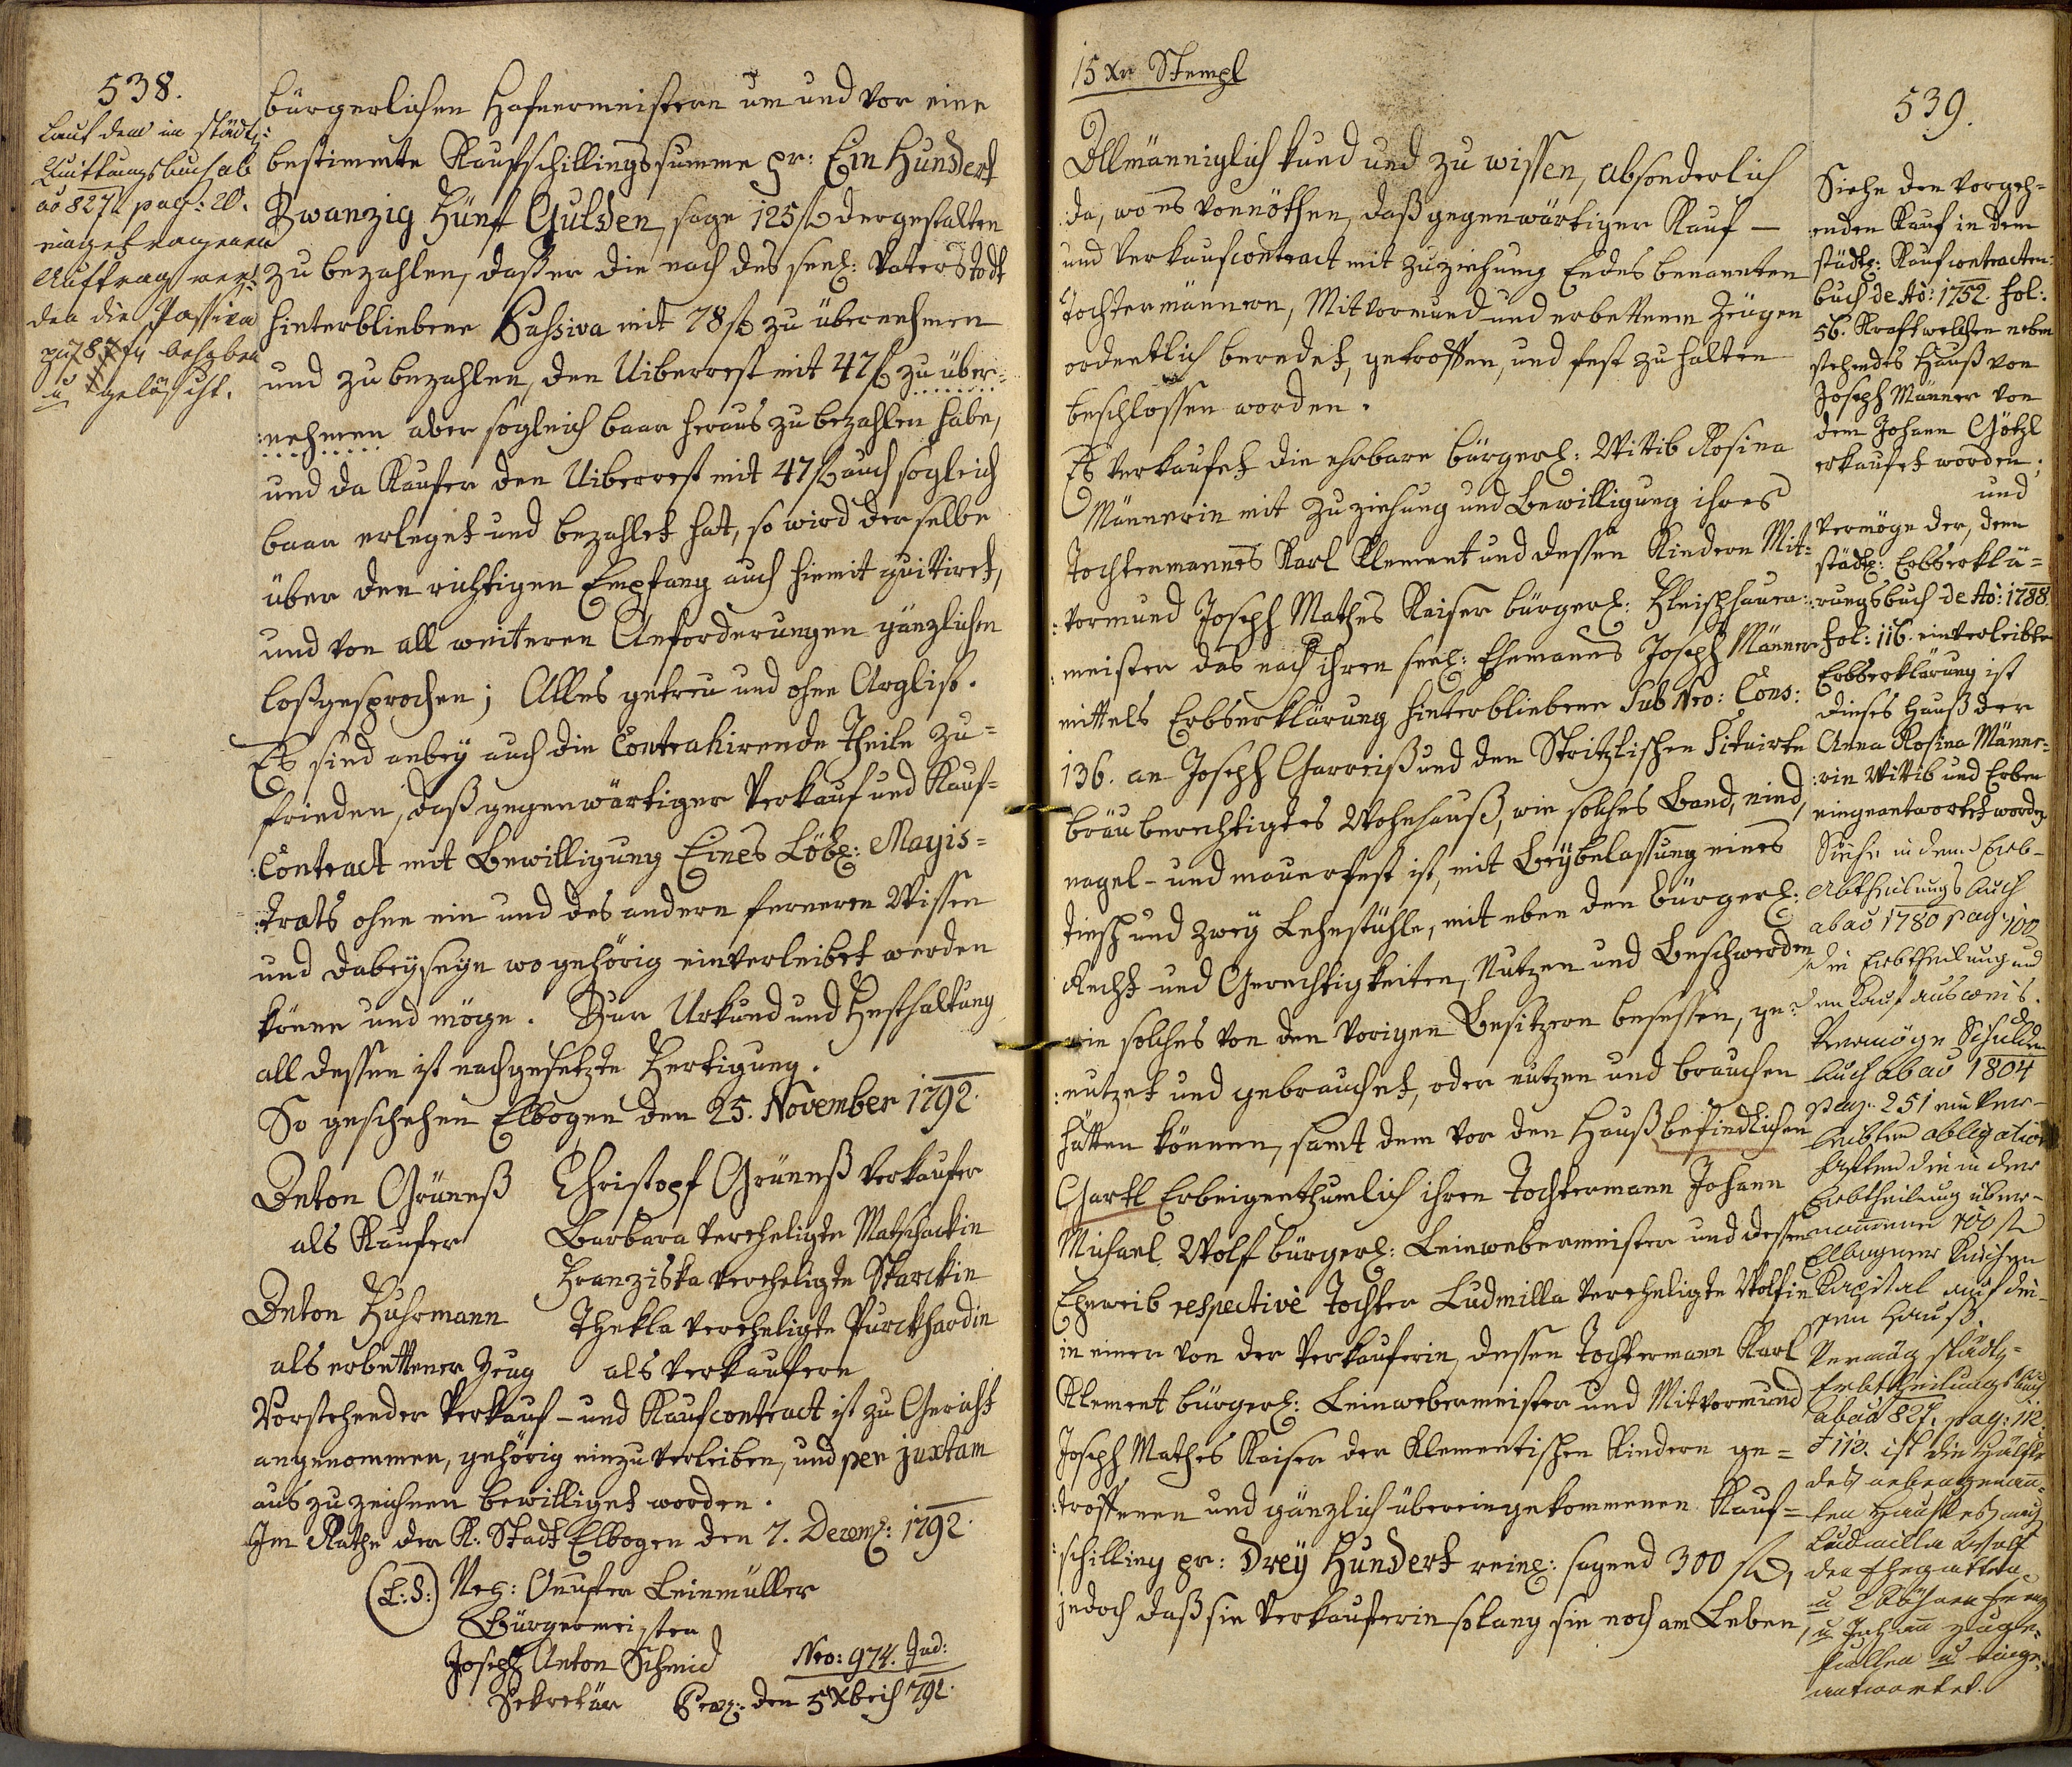 538.
Lauf dem im städtl:
Quittungsbuch ab
ao 827 pag: 20.
eingetragenen
Auftrag wer¬
den die Passiva
pr 78 f behoben
u gelöscht.
bürgerlichen Hafnermeistern um und vor eine
bestimmte Kaufschillingssumme pr: Ein Hundert
Zwanzig Fünf Gulden, sage 125 f dergestalten
zu bezahlen, daß er die nach des seel: Vaters Todt
hinterbliebene Passiva mit 78 f zu übernehmen
und zu bezahlen, den Uiberrest mit 47 f zu über¬
:nehmen aber sogleich baar heraus zu bezahlen habe,
und da Kaufer den Uiberrest mit 47 f auch sogleich
baar erleget und bezahlet hat, so wird derselbe
über den richtigen Empfang auch hiemit quittiret,
und von all weiteren Anforderungen gänzlichen
loßgesprochen; Alles getreu und ohne Arglist.
Es sind anbey auch die Contrahirende Theile zu=
frieden, daß gegenwärtiger Verkauf und Kauf=
:Contract mit Bewilligung Eines Löbl: Magis=
:trats ohne ein und des andern ferneren Wissen
und Dabeyseyn wo gehörig einverleibet werden
könne und möge. Zur Urkund und Festhaltung
all dessen ist nachgesetzte Fertigung.
So geschehen Elbogen den 25. November 1792.
Anton Grüneß Christoph Grüneß Verkaufer
als Kaufer Barbara vereheligte Matschackin
Franziska vereheligte Starckin
Anton Fuhrmann Thekla vereheligte Purckhardin
als erbettener Zeug als Verkaufere
Vorstehender Verkauf- und Kaufcontract ist zu Gericht
angenommen, gehörig einzuverleiben, und per juxtam
auszuzeichnen bewilliget worden.
Im Rathe der K: Stadt Elbogen den 7. Decemb: 1792.
(L:S:) Onufer Leinmüller
Bürgermeister
Joseph Anton Schmid Nro: 974. Jud:
Sekretär den 5 Xbris 792.
15 Xr Stempl
539.
Allmänniglich kund und zu wissen, absonderlich
da, wo es vonnöthen, daß gegenwärtiger Kauf-
und Verkaufcontract mit Zuziehung Endes benannten
Tochtermännern, Mitvormund und erbettenen Zeugen
ordentlich beredet, getroffen, und fest zu halten
beschlossen worden.
Es verkaufet die ehrbare bürgerl: Wittib Rosina
Männerin mit Zuziehung und Bewilligung ihres
Tochtermannes Karl Klement und dessen Kindern Mit=
:vormund Joseph Mathes Kaiser bürgerl: Fleischhauer=
:meister das nach ihren seel: Ehemanns Joseph Männer
mittels Erbserklärung hinterbliebene Sub Nro: Cons:
136. an Joseph Garreiß und den Stritzlischen Situirte
bräuberechtigtes Wohnhauß, wie solches Band, nied,
nagel- und mauerfest ist, mit Beybelassung eines
Tisch und zwey Lehnstühle, mit eben den bürgerl:
Recht und Gerechtigkeiten, Nutzen und Beschwerden
wie solches von den vorigen Besitzern besessen, ge=
:nutzet und gebrauchet, oder nutzen und brauchen
hätten können, samt dem vor den Hauß befindlichen
Gartl Erbeigenthumlich ihren Tochtermann Johann
Michael Wolf bürgerl: Leinwebermeister und dessen
Eheweib respectivè Tochter Ludmilla vereheligte Wolfin
in einer von der Verkauferin, dessen Tochtermann Karl
Klement bürgerl: Leinwebermeister und Mitvormund
Joseph Mathes Kaiser der Klementischen Kindern ge=
:troffenen und gänzlich übereingekommenen Kauf=
:schilling pr: Drey Hundert reinl: sagend 300 f,
jedoch daß sie Verkauferin solang sie noch am Leben
Siehe den vorgeh=
enden Kauf in dem
städtl: Kaufcontracten=
buch de Ao: 1752 fol:
56. Kraft welchen neben
stehendes Hauß von
Joseph Männer von
dem Johann Götzl
erkaufet worden;
und
Vermöge der, dem
städtl: Erbserklä=
:rungsbuch de Ao: 1788.
fol: 116. einverleibte
Erbserklärung ist
dieses Hauß der
Anna Rosina Männe=
:rin Wittib und Erben
eingeantwortet worden
Siehe in dem Erb-
Abtheilungs Buch
ab ao 1780 pag: 102
die Erbtheilung und
den Kauf ausweis.
Vermöge Schulden
Buch ab ao 1804
pag. 251 einver-
leibten obligation
haften die in der
Erbtheilung über-
nommene 100 f
Elbogner Kirchen
Kapital auf die-
sem Hauß.
Vermög städtl=
Erbtheilungsbuch
ab ao 827. pag: 112.
ist die Hälfte
des nebengenann=
ten Hauses nach
Ludmilla Wolf
den Ehegatten
u 2 Söhnen Franz
u Johann zuge=
fallen u einge=
antwortet.